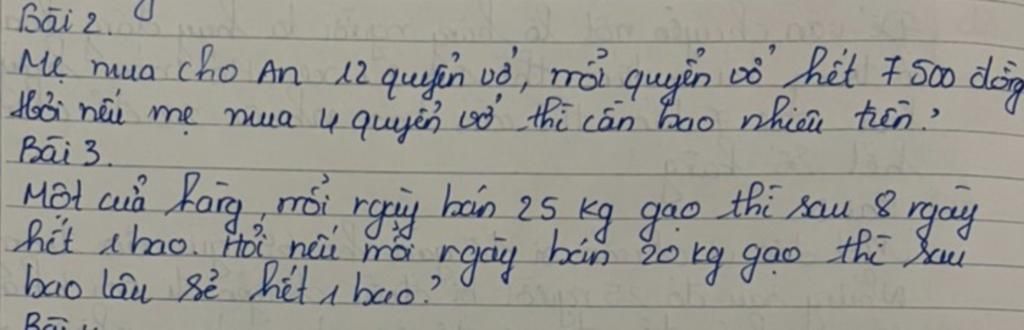 Bài 2.
Mẹ mua cho An 12 quyển vở, mỗi quyển vở hết 7500 đồng
Hỏi nếu mẹ mua 4 quyển vở thì cần bao nhiêu tiền?
Bài 3.
Một cửa hàng, mỗi ngày bán 25 kg gạo thì sau 8 ngày
hết 1 bao. Hỏi nếu mỗi ngày bán 20 kg gạo thì sau
bao lâu sẽ hết 1 bao?